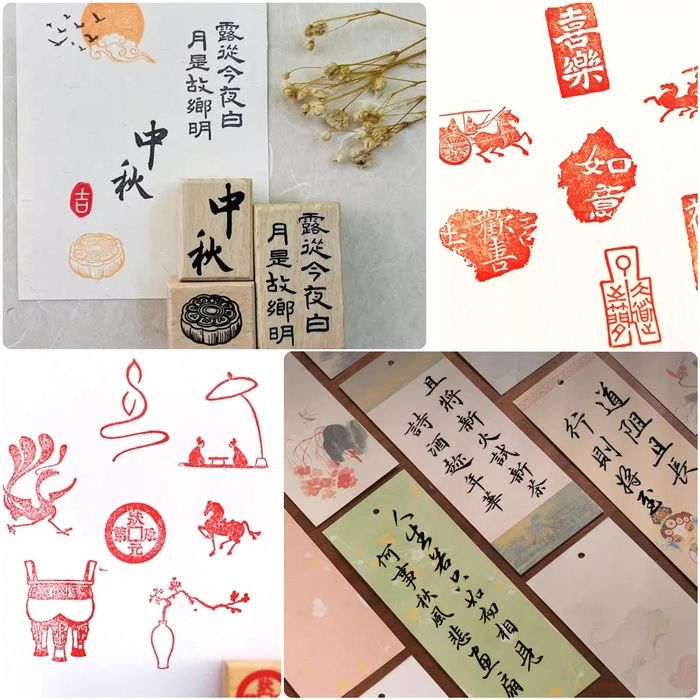 露從今夜白
月是故鄉明
中秋
吉
中秋
露從今夜白
月是故鄉明
喜樂
如意
勸善
狀元及第
且將新火試新茶
詩酒趁年華
道阻且長
行則將至
人生若只如初相見
何事秋風悲画扇